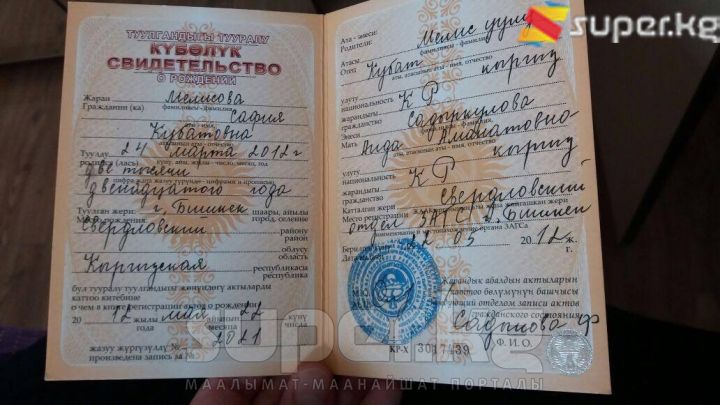 super.kg
ТУУЛГАНДЫГЫ ТУУРАЛУ
КҮБӨЛҮК
СВИДЕТЕЛЬСТВО
О РОЖДЕНИИ
Жаран Мелисова
Гражданин (ка) фамилиясы - фамилия
София
аты - имя
Кубатовна
атасынын аты - отчество
Туулду 24 марта 2012 г
родился (лась) күнү, айы, жылы - число, месяц, год
две тысячи
цифра жана жазуу түрүндө - цифрами и прописью
двенадцатого года
Туулган жери: г. Бишкек шаары, айылы
место рождения город, селение
Свердловский району
район
облусу
область
Кыргызская республикасы
республика
бул тууралуу туулгандыгы жөнүндөгү актыларды
каттоо китебине
о чем в книге регистрации актов о рождении
2012 жылы мая 22 күнү
года айынын месяца числа
жазуу жүргүзүлдү № 2021
произведена запись за №
Ата - энеси:
Родители:
Атасы Мелис уулу
Отец фамилиясы - фамилия
Кубат
аты, атасынын аты - имя, отчество
улуту кыргыз
национальность
жарандыгы КР
гражданство
Энеси Садыркулова
Мать фамилиясы - фамилия
Аида Аманатовна
аты, атасынын аты - имя, отчество
улуту кыргыз
национальность
жарандыгы КР
гражданство
Катталган жери Свердловский
Место регистрации
отдел ЗАГС г. Бишкек
наименование и местонахождение органа ЗАГСа
Берилген күнү 22 05 2012 ж.
Дата выдачи г.
Жарандык абалдын актыларын
каттоо бөлүмүнүн башчысы
Заведующий отделом записи актов
гражданского состояния
Садыкова Ф
Ф. И. О.
КР-Х 3017439
super.kg
МААЛЫМАТ-МААНАЙШАТ ПОРТАЛЫ